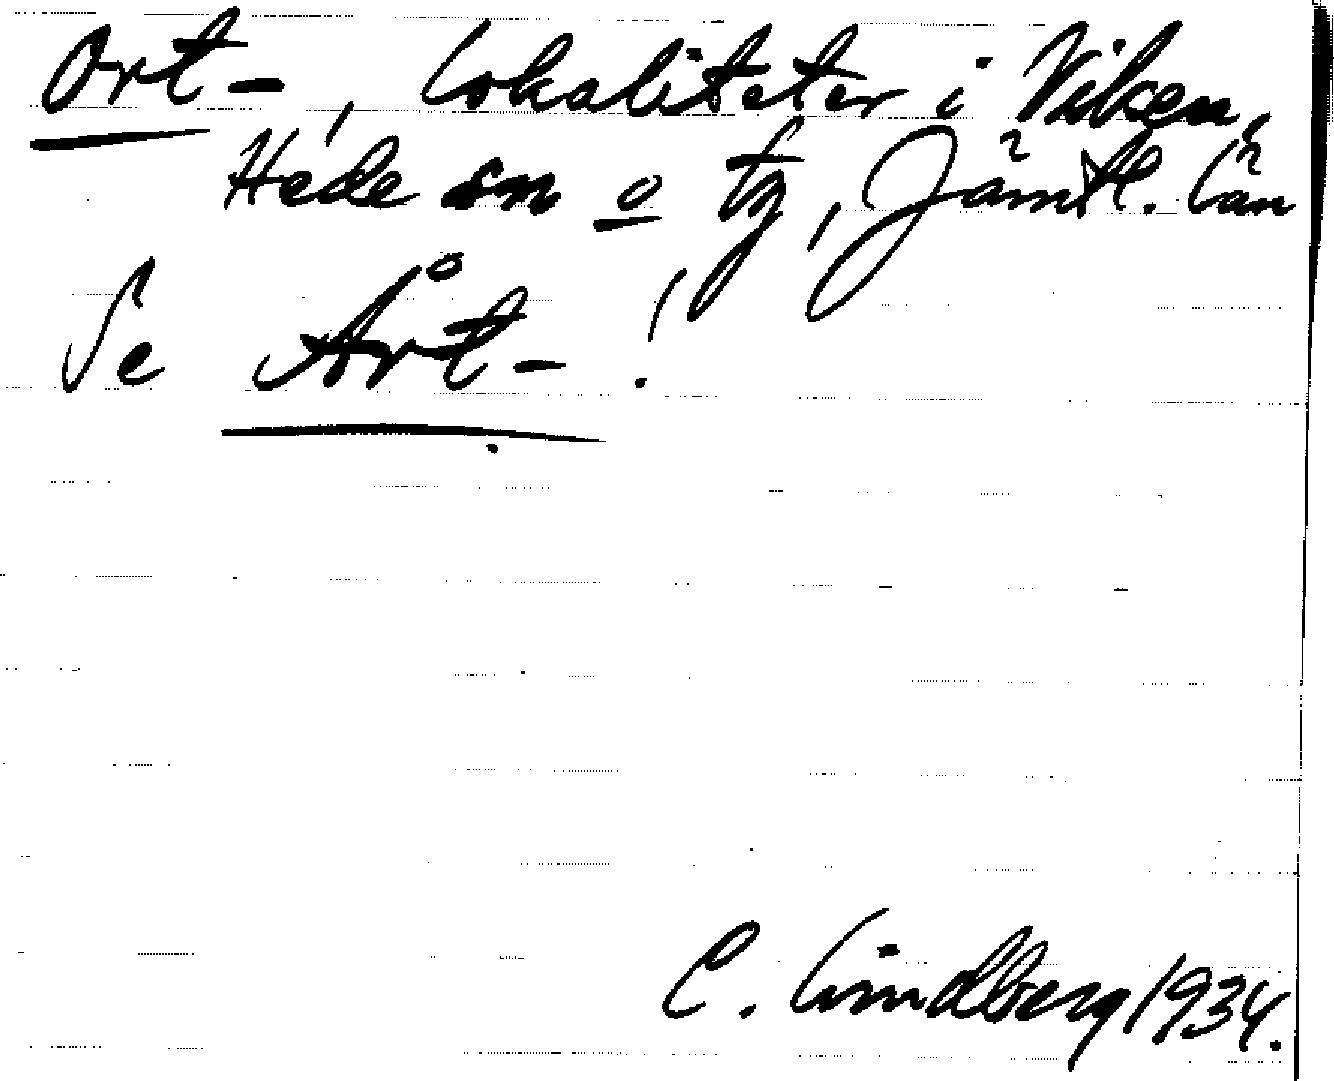 Ort-, lokaliteter i Viken,
Hede sn o tg, Jämtl. län
Se Årt-!
C. Lindberg 1934.